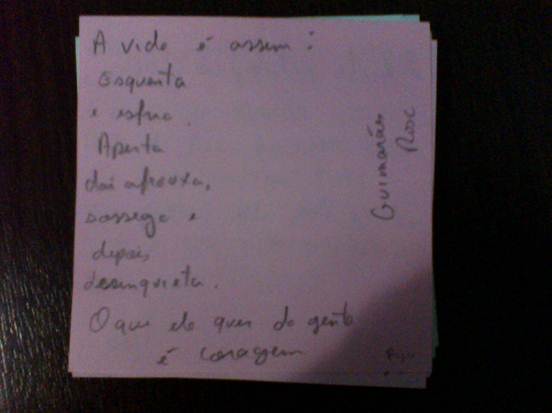 A vida é assim:
Esquenta
e esfria.
Aperta
daí afrouxa,
sossega e
depois
desinquieta.
O que ela quer da gente
é coragem
Guimarães
Rosa